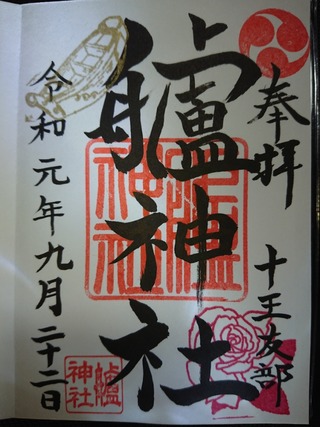 奉拝
十王友部
艫神社
艫
神社
令和元年九月二十二日
艫
神社